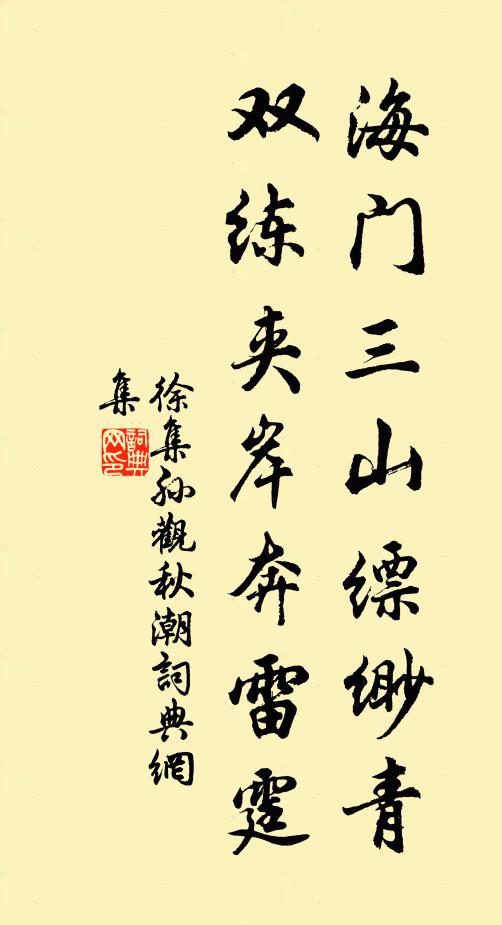 海门三山缥缈青
双练夹岸奔雷霆
徐集孙觀秋潮詞典網
集
詞典网印